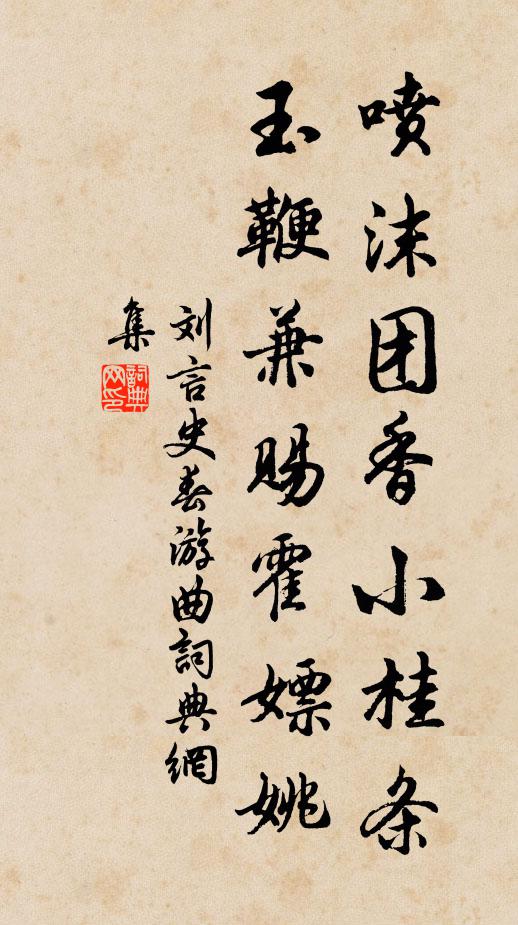 喷沫团香小桂条
玉鞭兼赐霍嫖姚
刘言史春游曲詞典網
集
詞典网印